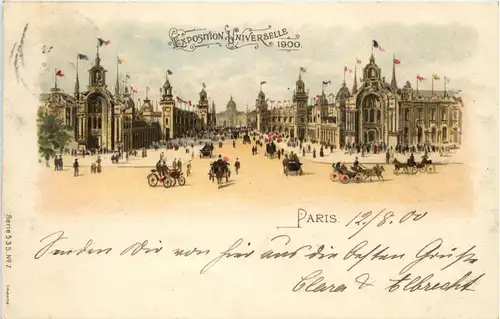 EXPOSITION UNIVERSELLE
1900.
PARIS. 12/8. 00
Senden Dir von hier aus die besten Grüße
Clara & Albrecht
Serie 535. Nº 7